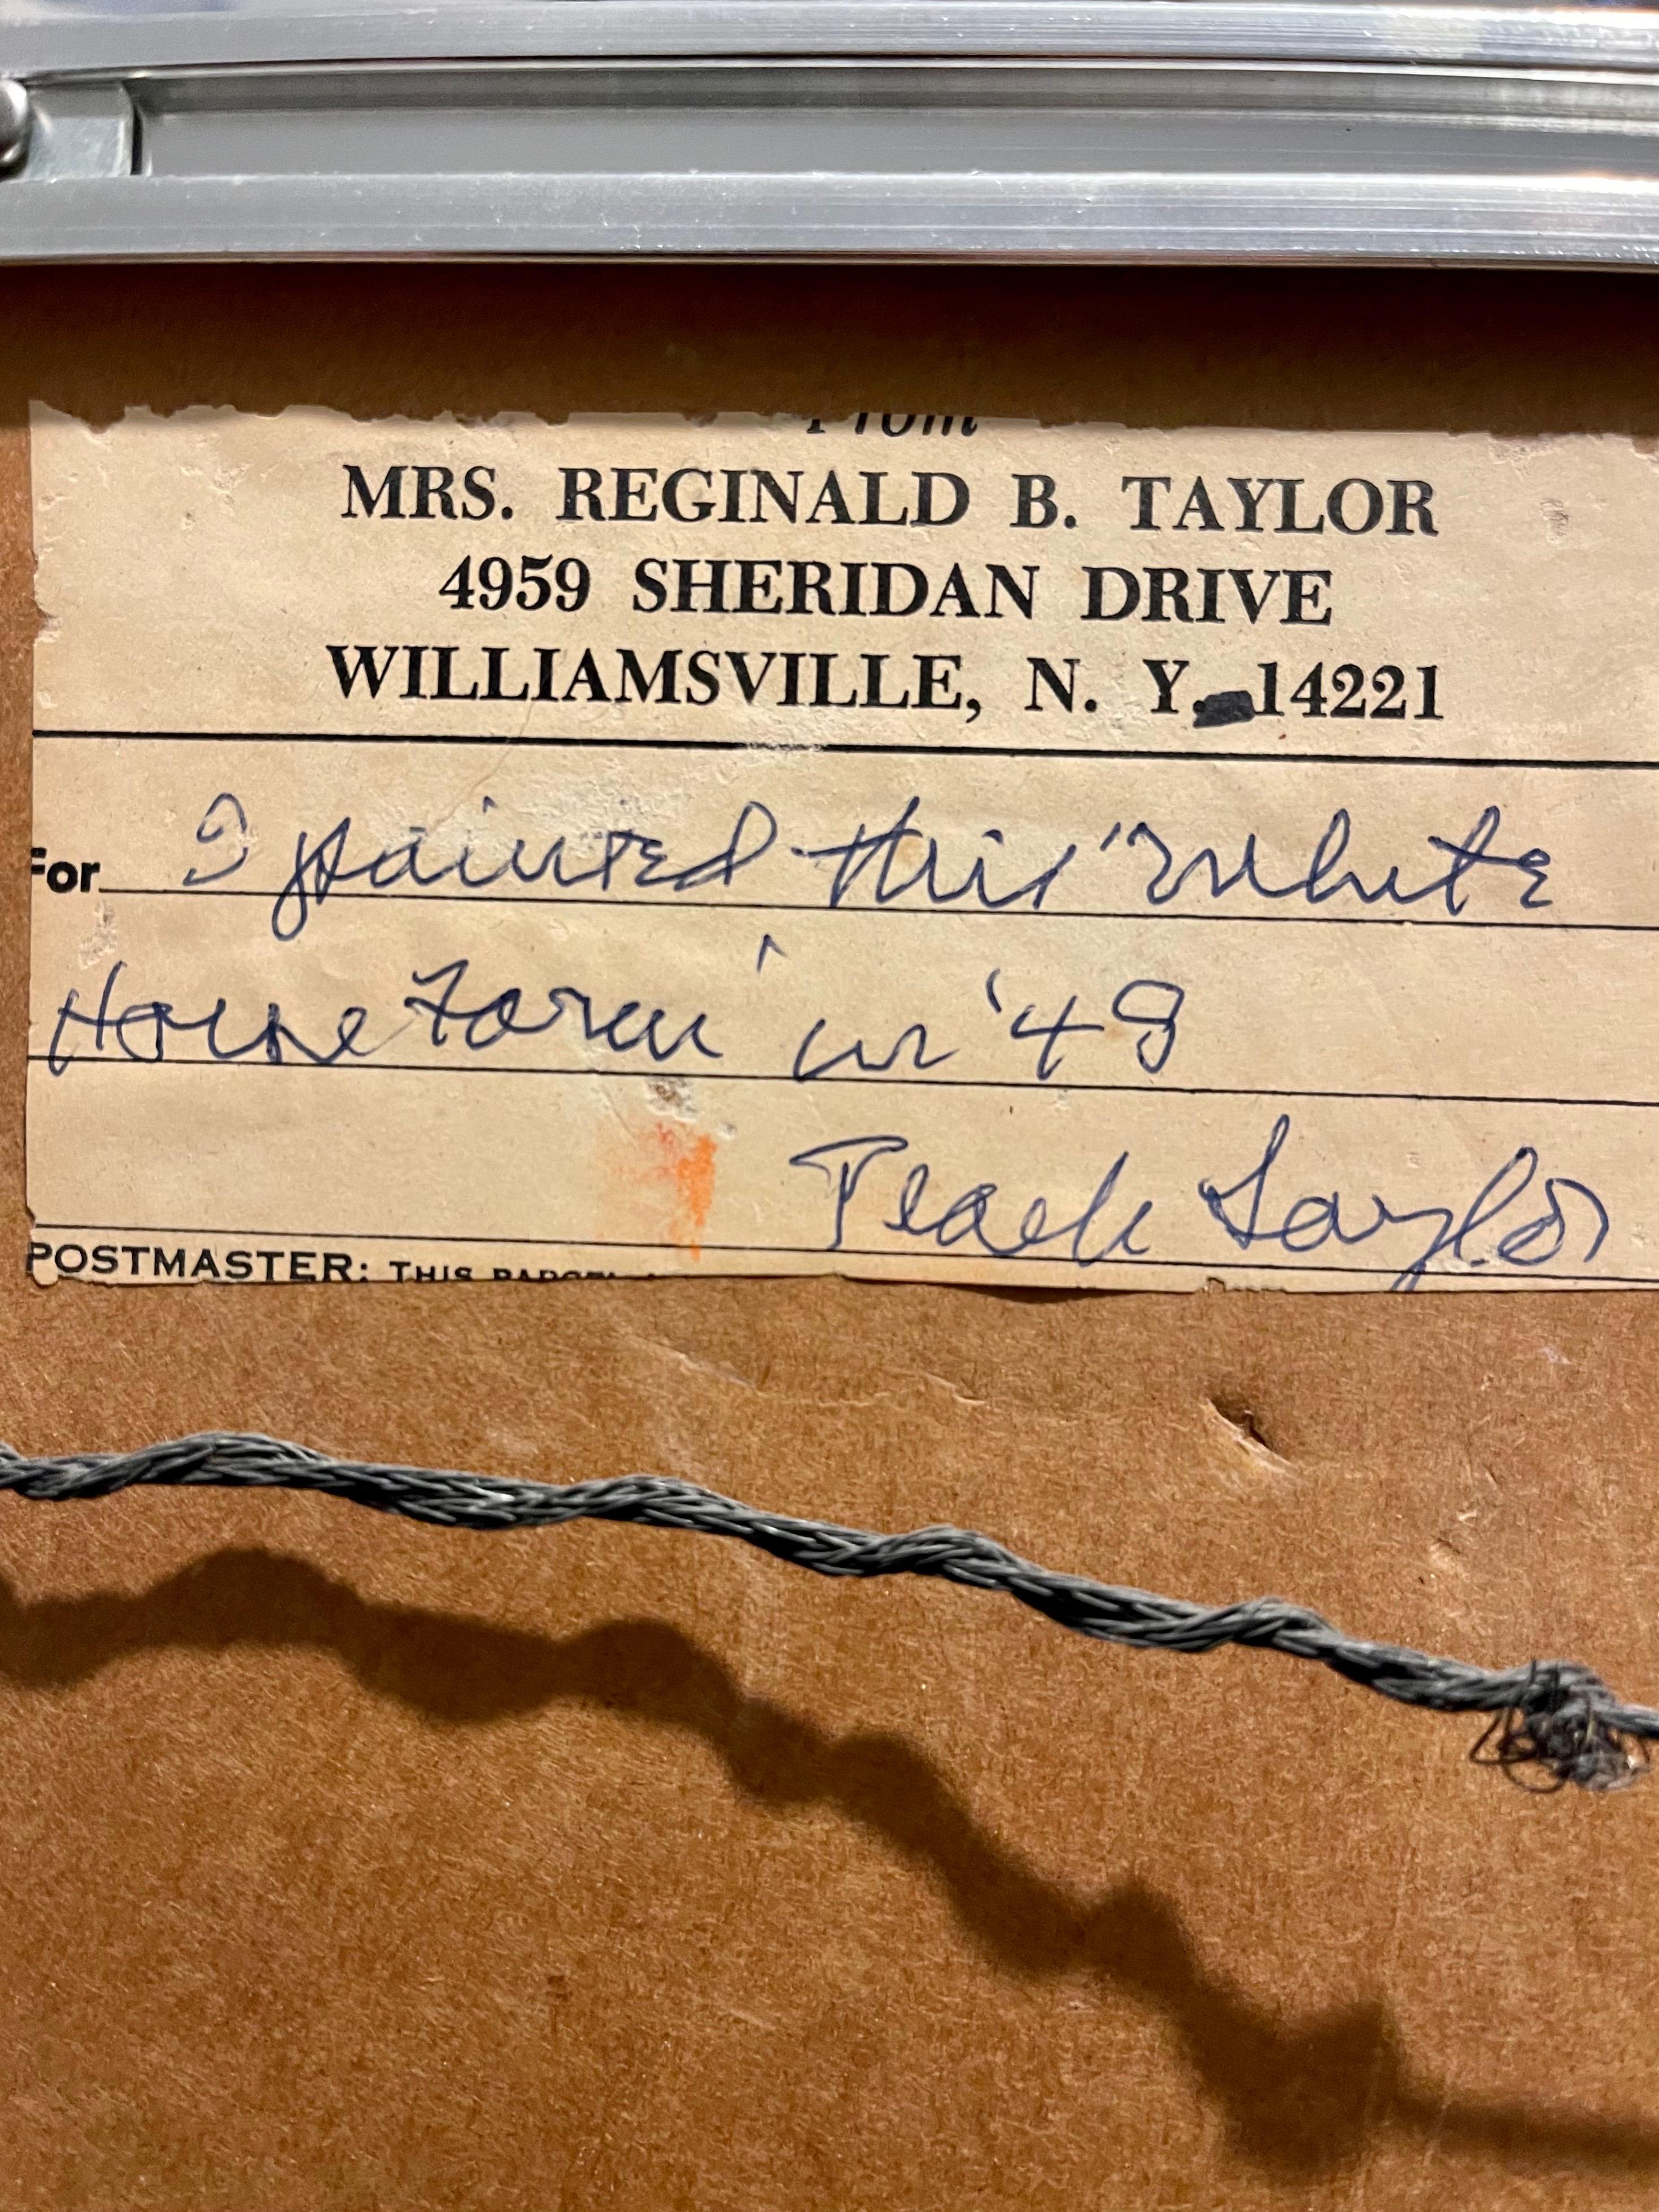 From
MRS. REGINALD B. TAYLOR
4959 SHERIDAN DRIVE
WILLIAMSVILLE, N. Y. 14221
For I painted this "White
House Farm" in '48
Taylor
POSTMASTER: THIS PARCEL